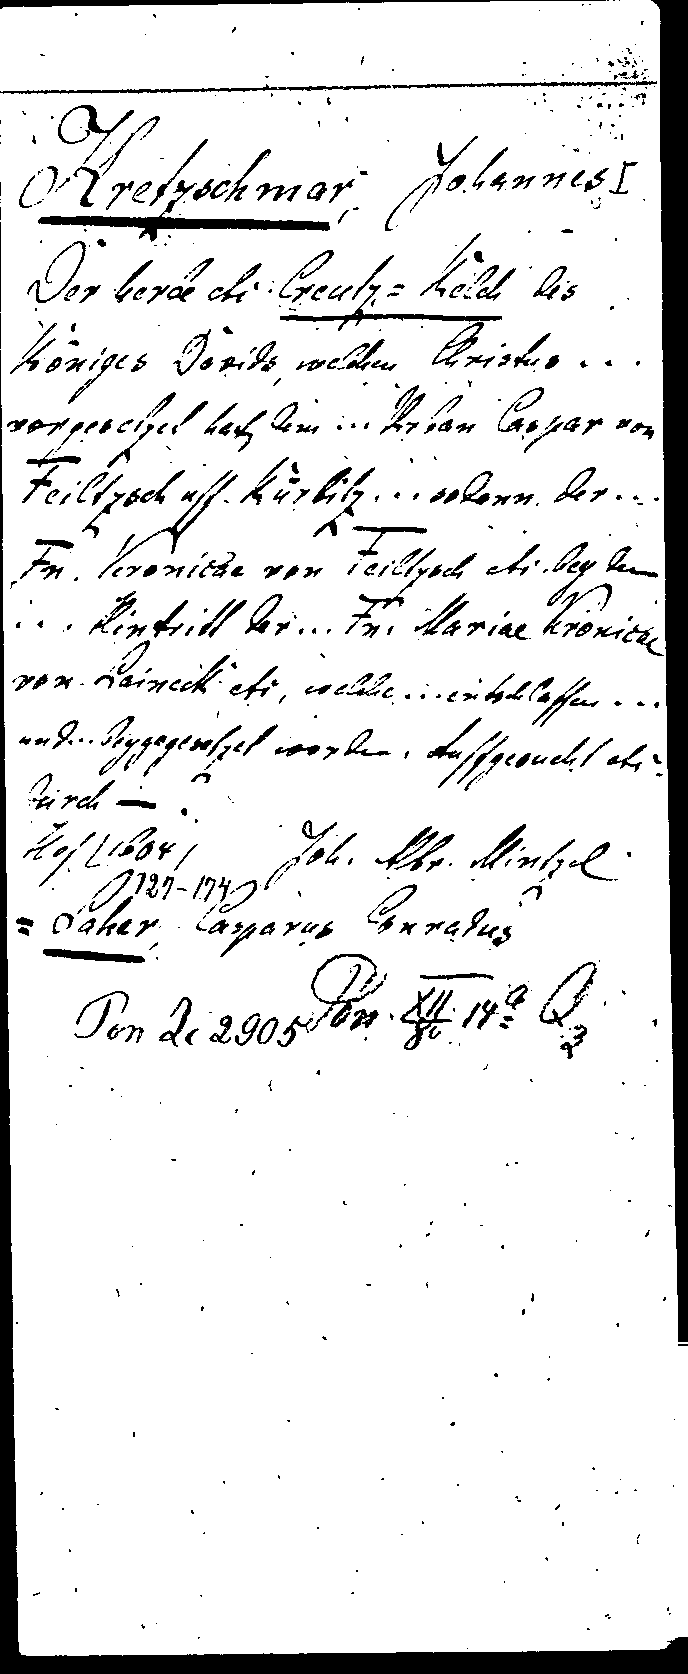 Kretzschmar, Johannes I
Der herbe etc. Creutz=Kelch des
Königes Davids, welchen Christus ...
vorgesetzet hat, dem ... Urban Caspar von
Feiltzsch uff Kürbitz ... sodann der ...
Fr. Veronicae von Feiltzsch etc. bey dem
... Hintritt der ... Fr. Mariae Kronicae
von Laineck etc., welche ... entschlaffen ...
und ... beygesetzet worden. Auffgesucht etc.
durch — .
Hof (1684) Joh. Albr. Mintzel
(127-174)
= Laher, Casparus Conradus
Pon Zc 2905 Pon. XII 14a Q